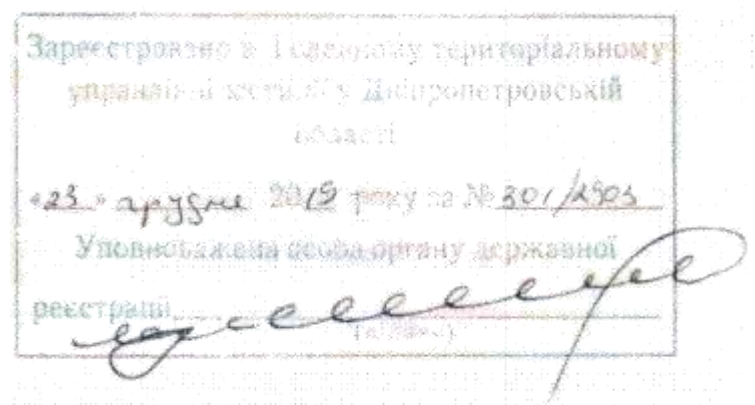 Зареєстровано в Головному територіальному
управлінні юстиції у Дніпропетровській
області
«23» грудня 2019 року за № 301/2903
Уповноважена особа органу державної
реєстрації
(підпис)